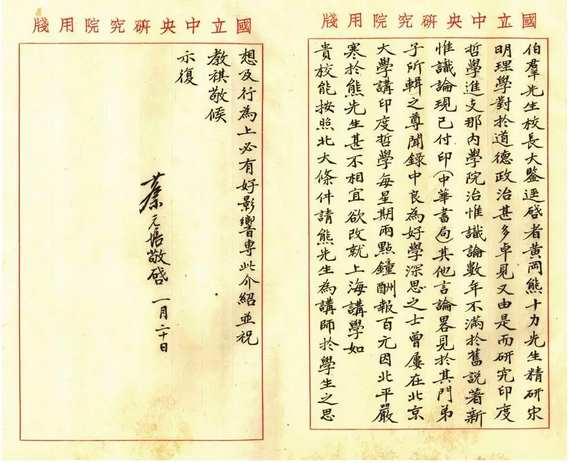 國立中央研究院用牋
伯羣先生校長大鑒逕啓者黃岡熊十力先生精研宋
明理學對於道德政治甚多卓見又由是而研究印度
哲學進支那內學院治惟識論數年不滿於舊說著新
惟識論現已付印(中華書局)其他言論畧見於其門弟
子所輯之尊聞錄中良為好學深思之士曾屢在北京
大學講印度哲學每星期兩點鐘酬報百元因北平嚴
寒於熊先生甚不相宜欲改就上海講學如
貴校能按照北大條件請熊先生為講師於學生之思
國立中央研究院用牋
想及行為上必有好影響專此介紹並祝
教祺敬候
示復
蔡元培敬啓 一月二十日